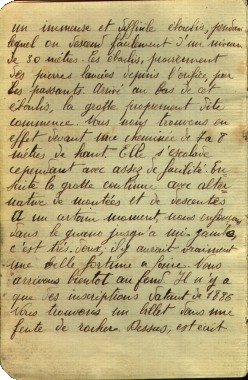 un immense et difficile éboulis, pendant
lequel on descend facilement d'un niveau
de 50 mètres. Ces éboulis, proviennent
des pierres lancées depuis l'orifice, par
les passants. Arrivé au bas de cet
éboulis, la grotte proprement dite
commence. Nous nous trouvons en
effet devant une cheminée de 7 à 8
mètres de haut. Elle s'escalade
cependant avec assez de facilité. En-
suite la grotte continue avec alter-
native de montées et de descentes
A un certain moment, nous enfonçons
dans le guano jusqu'à mi-jambe,
c'est très doux, il y aurait vraiment
une belle fortune à faire. Nous
arrivons bientôt au fond. Il n'y a
que des inscriptions datant de 1886
Nous trouvons un billet dans une
fente de rocher. Dessus, est écrit